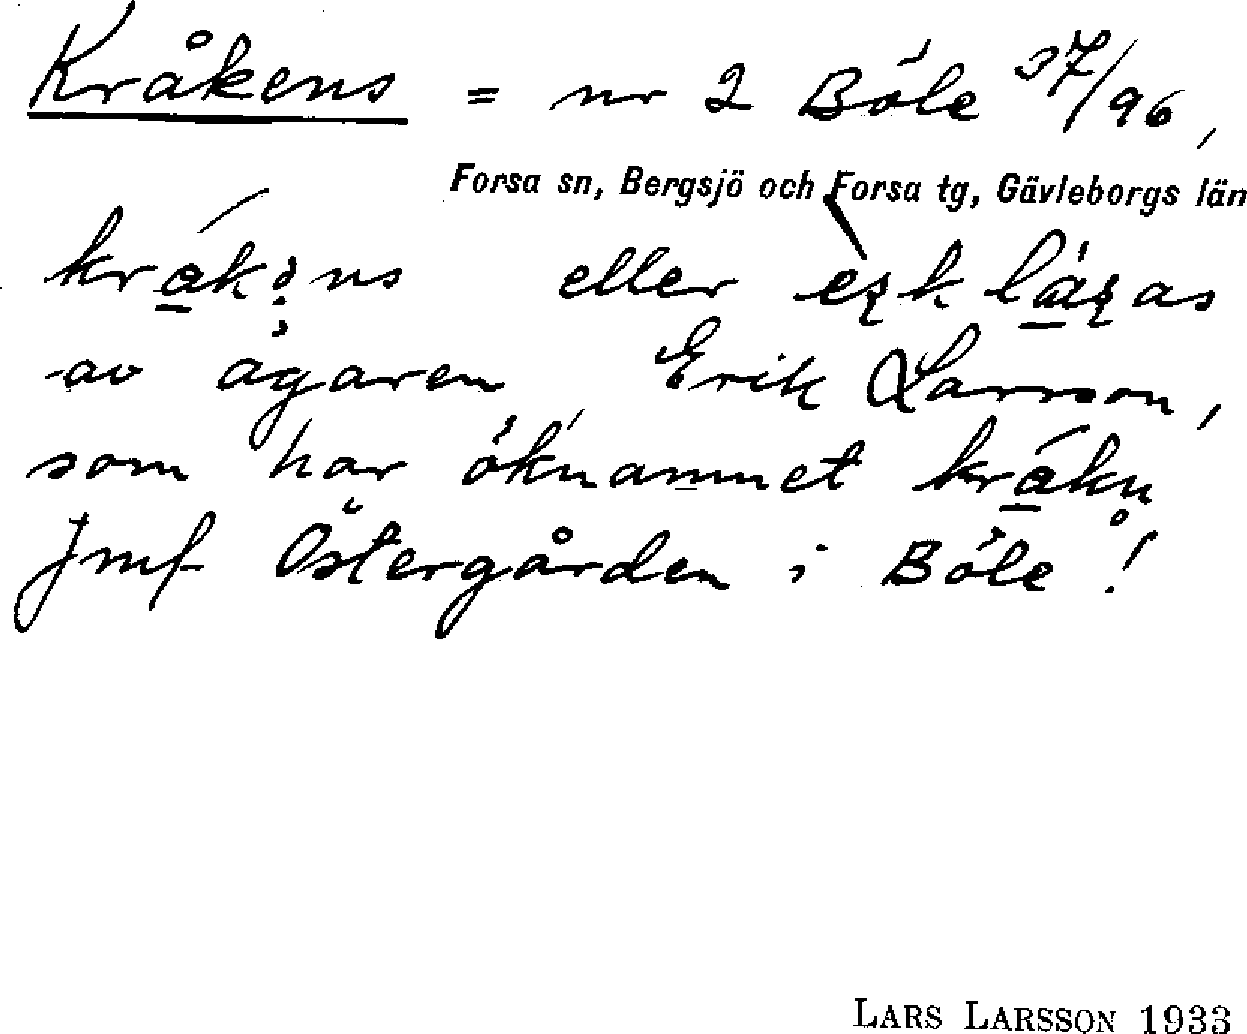 Kråkens = nr 2 Böle 37/96,
Forsa sn, Bergsjö och Forsa tg, Gävleborgs län
eller
av ägaren Erik Larsson,
som har öknamnet
Jmf Östergården i Böle!
LARS LARSSON 1933